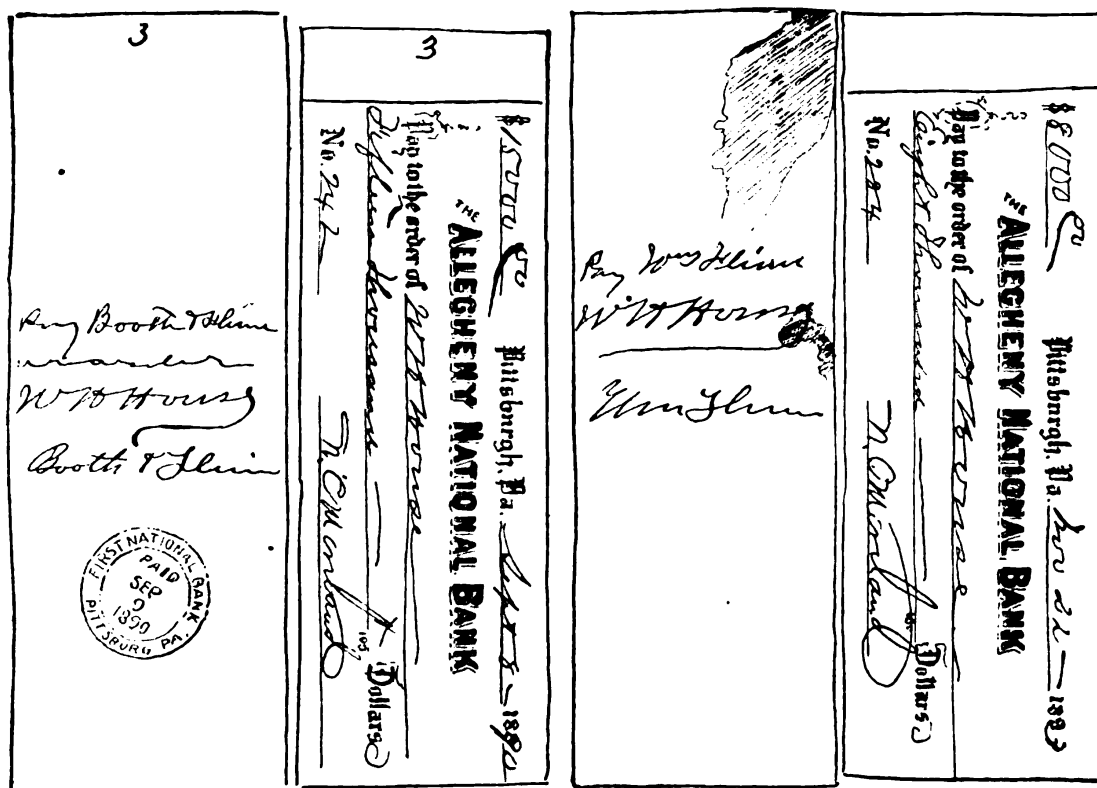 3
Pay Booth & Flinn
or order
W H House
Booth & Flinn
FIRST NATIONAL BANK,
PAID
SEP
9
1890
PITTSBURG PA.
3
$15000 00
Pittsburgh, Pa. Sept 8 — 1890
THE
ALLEGHENY NATIONAL BANK
Pay to the order of W H House
Fifteen thousand —
100 Dollars
No. 242
Pay Wm Flinn
W H House
Wm Flinn
$8000 00
Pittsburgh, Pa. Nov 22 — 188
THE
ALLEGHENY NATIONAL BANK
Pay to the order of W H House
Eight thousand —
Dollars
No. 204